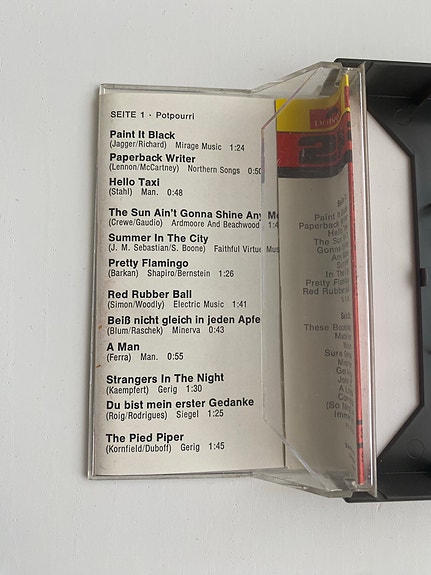 SEITE 1 · Potpourri
Paint It Black
(Jagger/Richard) Mirage Music 1:24
Paperback Writer
(Lennon/McCartney) Northern Songs 0:50
Hello Taxi
(Stahl) Man. 0:48
The Sun Ain't Gonna Shine Any Mo
(Crewe/Gaudio) Ardmoore And Beachwood 1:4
Summer In The City
(J. M. Sebastian/S. Boone) Faithful Virtue Mus
Pretty Flamingo
(Barkan) Shapiro/Bernstein 1:26
Red Rubber Ball
(Simon/Woodly) Electric Music 1:41
Beiß nicht gleich in jeden Apfe
(Blum/Raschek) Minerva 0:43
A Man
(Ferra) Man. 0:55
Strangers In The Night
(Kaempfert) Gerig 1:30
Du bist mein erster Gedanke
(Roig/Rodrigues) Siegel 1:25
The Pied Piper
(Kornfield/Duboff) Gerig 1:45
Paint It
Paperback
Hello
The Su
Gonna
Sum
In The
Pretty Flam
Red Rubber
These Boo